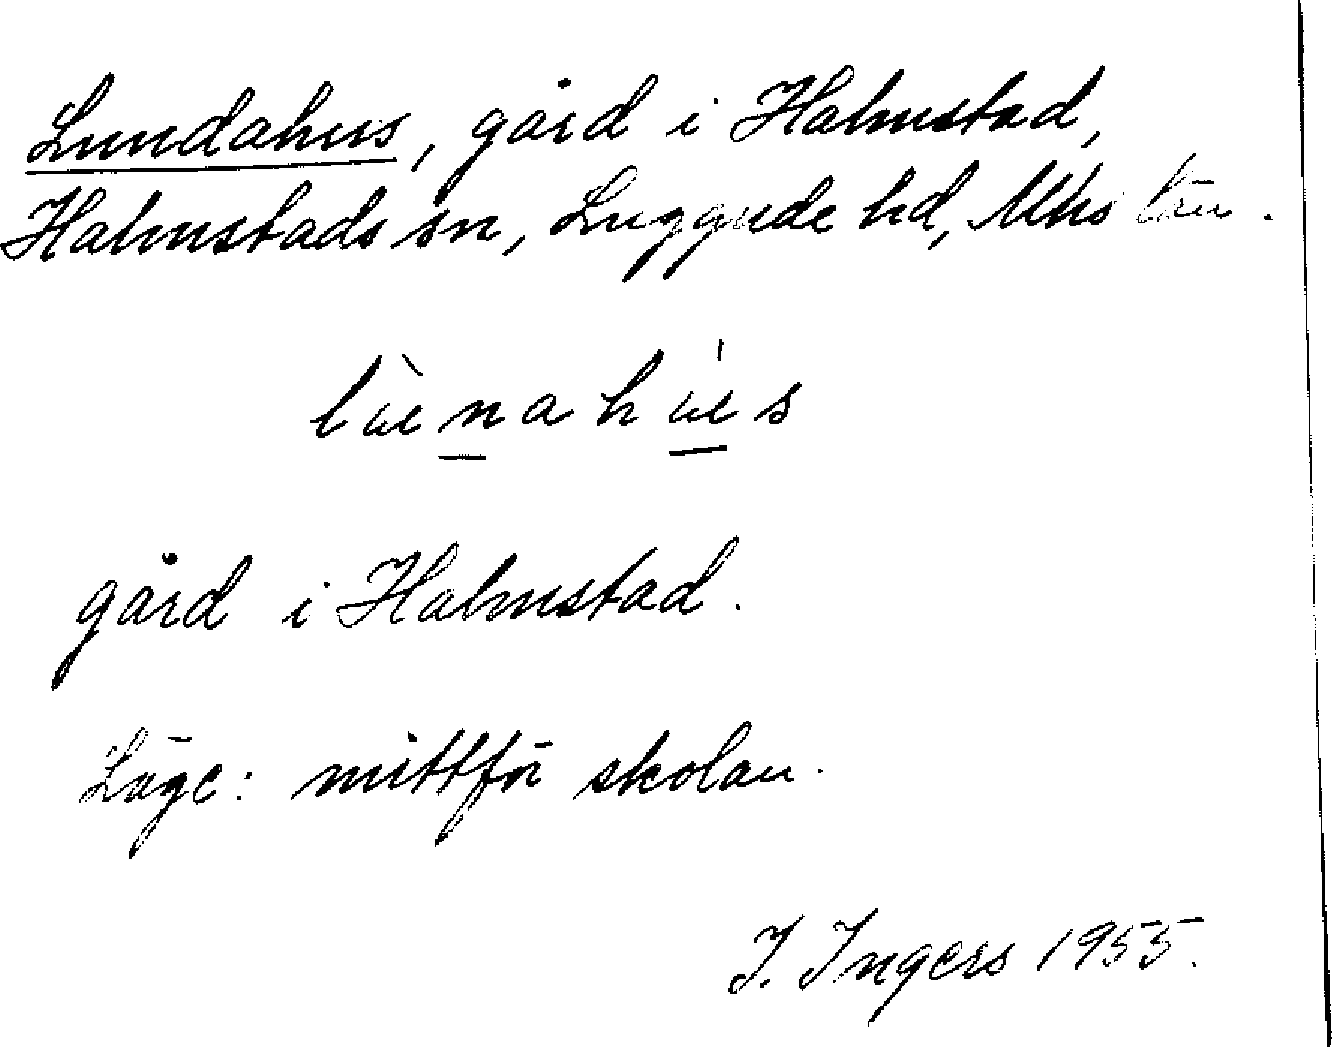 Lundahus, gård i Halmstad,
Halmstads sn, Luggude hd, Mhs län.
lùnahús
gård i Halmstad.
Läge: mittför skolan.
I. Ingers 1955.